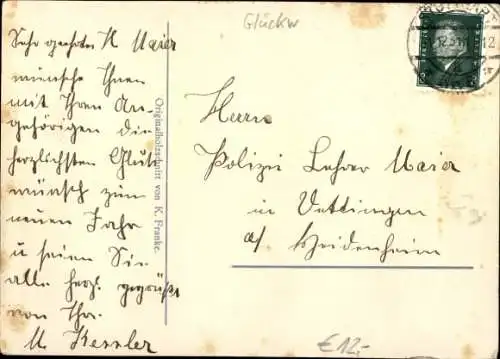 Glückw
Sehr geehrter H Maier
wünsche Ihnen
mit Ihren An-
gehörigen die
herzlichsten Glück
wünsch zum
neuen Jahr
u seien Sie
alle herzl gegrüßt
von Ihr.
M. Kessler
Originalholzschnitt von K. Franke.
Herrn
Polizei Lehrer Maier
in Vettingen
a/ Heidenheim
€12,-